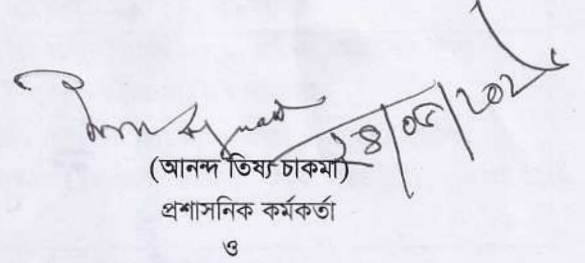 ২৪/০৫/২০২৫
(আনন্দ তিষ্য চাকমা)
প্রশাসনিক কর্মকর্তা
ও